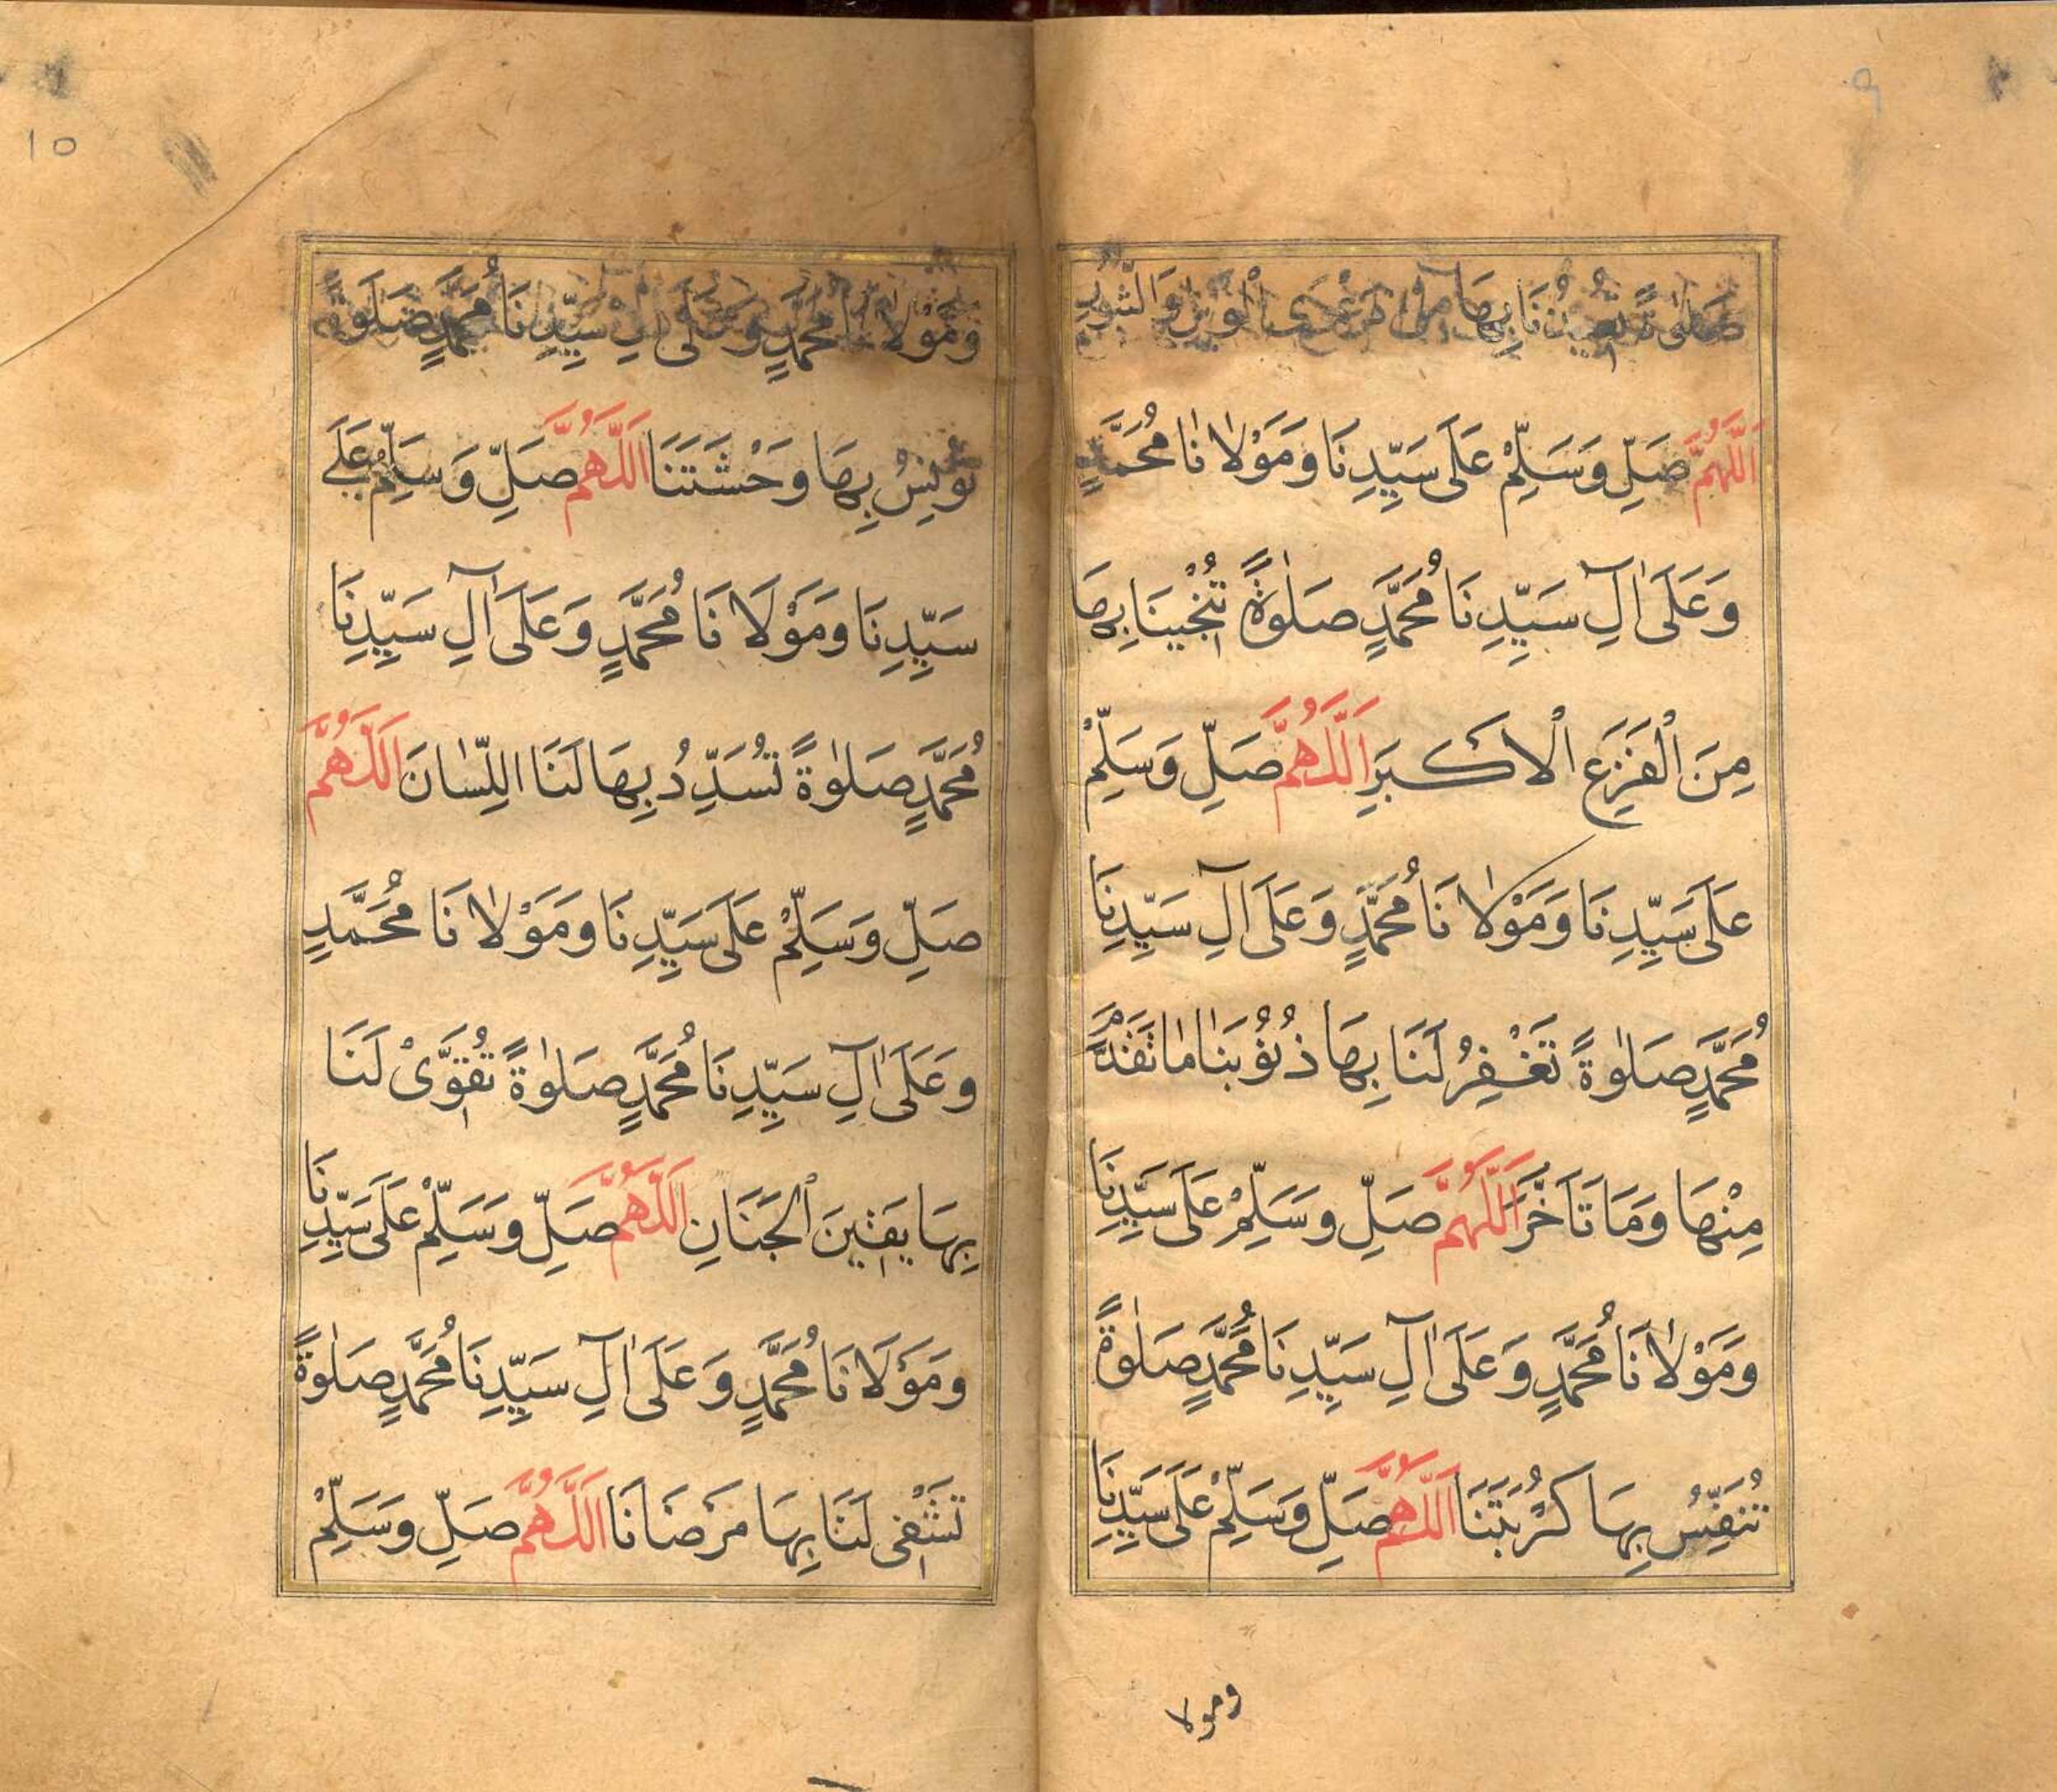 صَلٰوةً بِهَا وَالشُّرُورِ
اَللّٰهُمَّ صَلِّ وَسَلِّمْ عَلَى سَيِّدِنَا وَمَوْلَانَا مُحَمَّدٍ
وَعَلَى اٰلِ سَيِّدِنَا مُحَمَّدٍ صَلٰوةً تُنْجِينَا بِهَا
مِنَ الْفَزَعِ الْاَكْبَرِ اَللّٰهُمَّ صَلِّ وَسَلِّمْ
عَلَى سَيِّدِنَا وَمَوْلَانَا مُحَمَّدٍ وَعَلَى اٰلِ سَيِّدِنَا
مُحَمَّدٍ صَلٰوةً تَغْفِرُ لَنَا بِهَا ذُنُوْبَنَا مَا تَقَدَّمَ
مِنْهَا وَمَا تَاَخَّرَ اَللّٰهُمَّ صَلِّ وَسَلِّمْ عَلَى سَيِّدِنَا
وَمَوْلَانَا مُحَمَّدٍ وَعَلَى اٰلِ سَيِّدِنَا مُحَمَّدٍ صَلٰوةً
تُنَفِّسُ بِهَا كُرْبَتَنَا اَللّٰهُمَّ صَلِّ وَسَلِّمْ عَلَى سَيِّدِنَا
ومولا
10
وَمَوْلَانَا مُحَمَّدٍ وَعَلَى اٰلِ سَيِّدِنَا مُحَمَّدٍ صَلٰوةً
تُوْنِسُ بِهَا وَحْشَتَنَا اَللّٰهُمَّ صَلِّ وَسَلِّمْ عَلَى
سَيِّدِنَا وَمَوْلَانَا مُحَمَّدٍ وَعَلَى اٰلِ سَيِّدِنَا
مُحَمَّدٍ صَلٰوةً تُسَدِّدُ بِهَا لَنَا اللِّسَانَ اَللّٰهُمَّ
صَلِّ وَسَلِّمْ عَلَى سَيِّدِنَا وَمَوْلَانَا مُحَمَّدٍ
وَعَلَى اٰلِ سَيِّدِنَا مُحَمَّدٍ صَلٰوةً تُقَوِّىْ لَنَا
بِهَا يَقِينَ الْجَنَانِ اَللّٰهُمَّ صَلِّ وَسَلِّمْ عَلَى سَيِّدِنَا
وَمَوْلَانَا مُحَمَّدٍ وَعَلَى اٰلِ سَيِّدِنَا مُحَمَّدٍ صَلٰوةً
تَشْفِى لَنَا بِهَا مَرْضَانَا اَللّٰهُمَّ صَلِّ وَسَلِّمْ